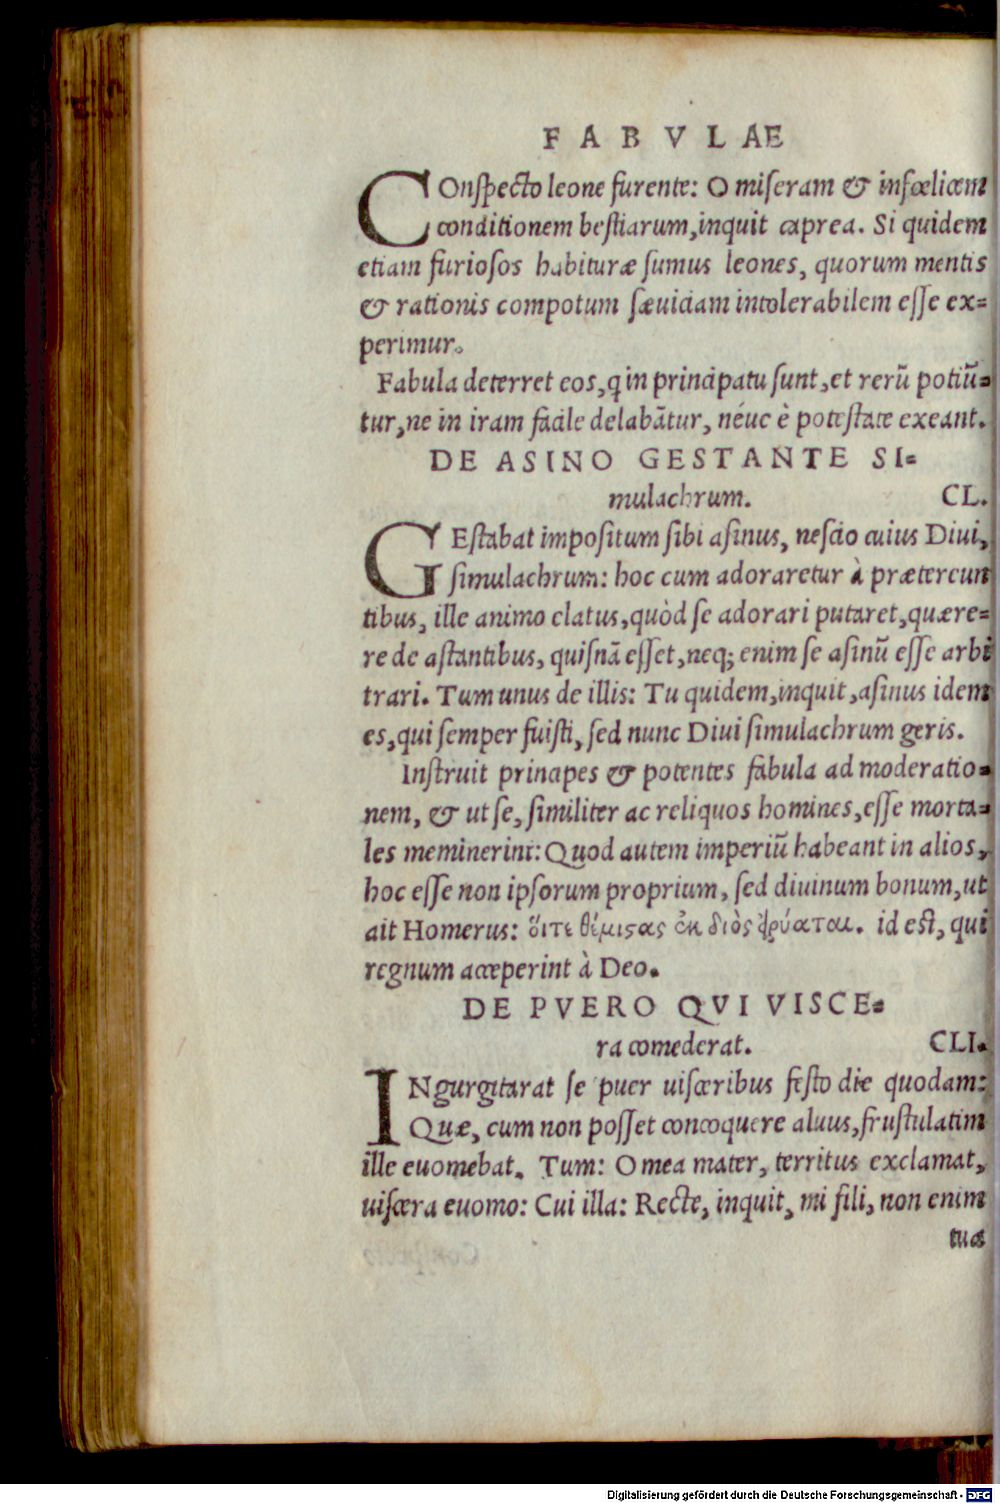 FABVLAE
COnspecto leone furente: O miseram & infœlicem
conditionem bestiarum, inquit caprea. Si quidem
etiam furiosos habituræ sumus leones, quorum mentis
& rationis compotum sæuiciam intolerabilem esse ex=
perimur.
Fabula deterret eos, q in principatu sunt, et rerū potiū=
tur, ne in iram facile delabātur, néuc è potestate exeant.
DE ASINO GESTANTE SI=
mulachrum. CL.
GEstabat impositum sibi asinus, nescio cuius Diui,
simulachrum: hoc cum adoraretur à prætereun
tibus, ille animo elatus, quòd se adorari putaret, quære=
re de astantibus, quisnā esset, neq; enim se asinū esse arbi
trari. Tum unus de illis: Tu quidem, inquit, asinus idem
es, qui semper fuisti, sed nunc Diui simulachrum geris.
Instruit principes & potentes fabula ad moderatio=
nem, & ut se, similiter ac reliquos homines, esse morta=
les meminerint: Quod autem imperiū habeant in alios,
hoc esse non ipsorum proprium, sed diuinum bonum, ut
ait Homerus: ὅιτε θέμιϛας ἐκ διὸς ἐιρύαται. id est, qui
regnum acceperint à Deo.
DE PVERO QVI VISCE=
ra comederat. CLI.
INgurgitarat se puer uisceribus festo die quodam:
Quæ, cum non posset concoquere aluus, frustulatim
ille euomebat. Tum: O mea mater, territus exclamat,
uiscera euomo: Cui illa: Recte, inquit, mi fili, non enim
tua
Digitalisierung gefördert durch die Deutsche Forschungsgemeinschaft - DFG